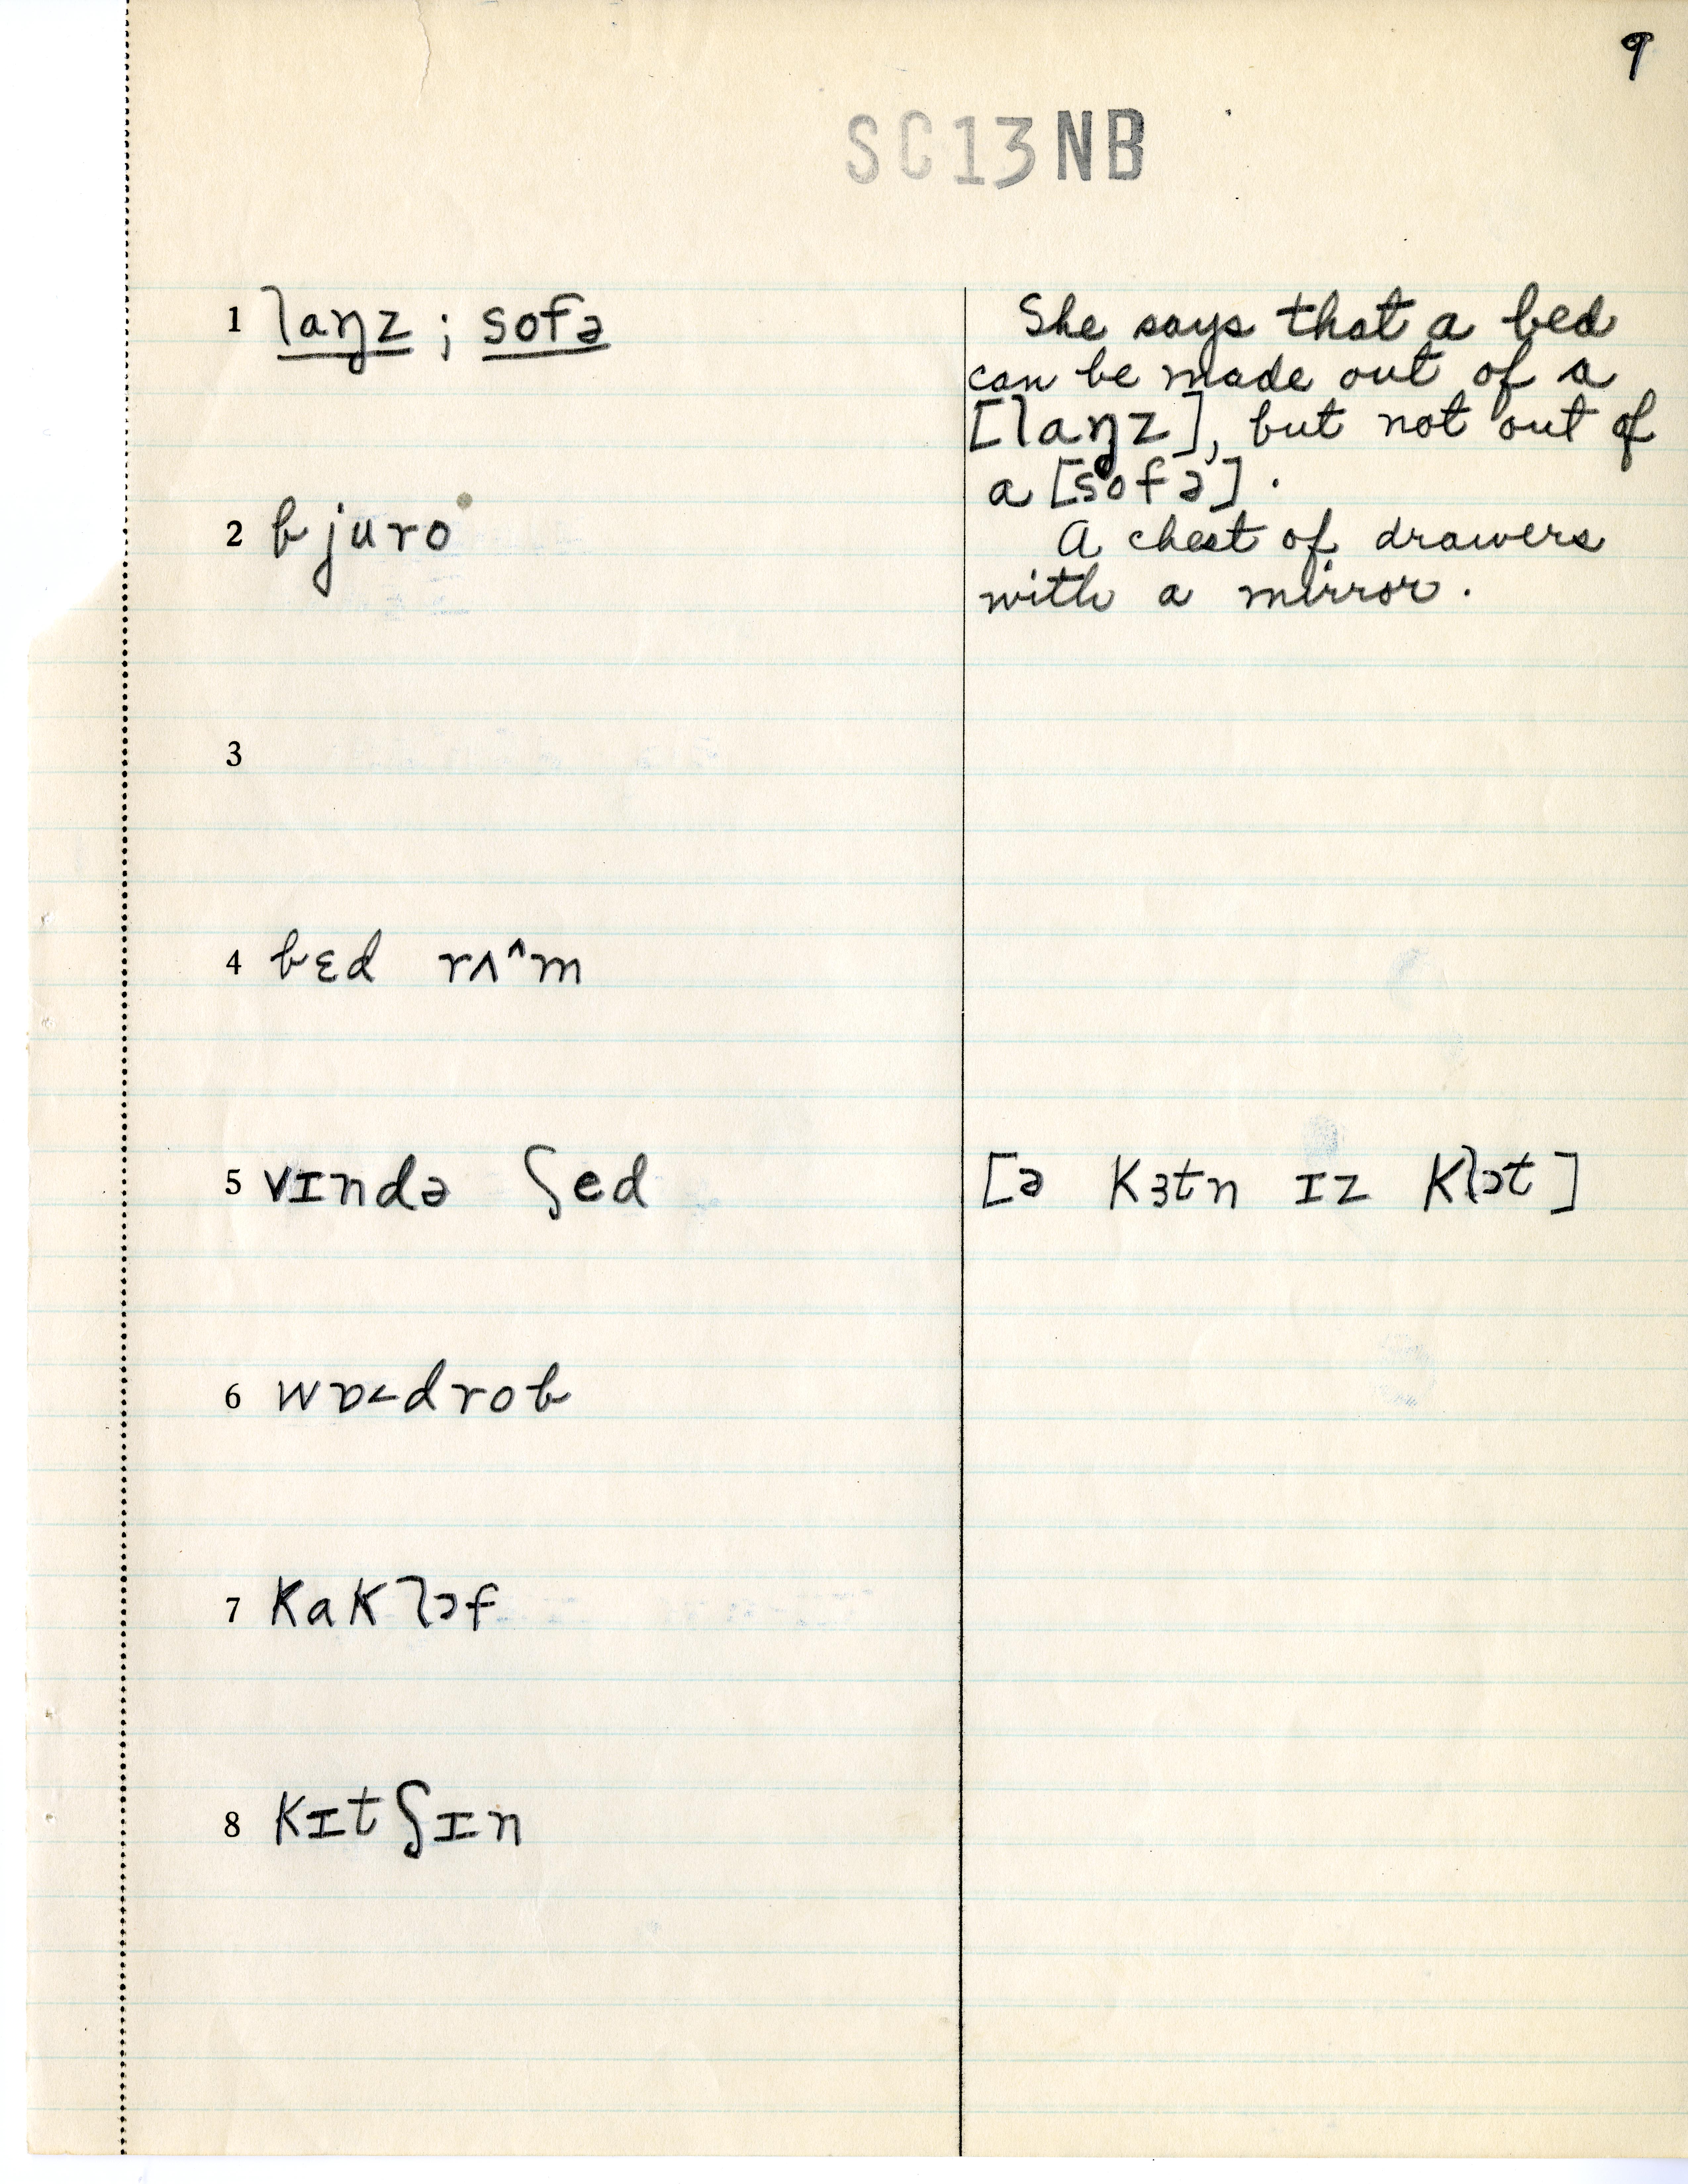 9
SC13NB
1 laŋz ; sofə
She says that a bed
can be made out of a
[laŋz], but not out of
a [sofə].
2 bjuro
A chest of drawers
with a mirror.
3
4 bɛd rʌ^m
5 vɪndə ʃed
[ə kɜtn ɪz klɔt]
6 wɒ<drob
7 kaklɔf
8 kɪtʃɪn